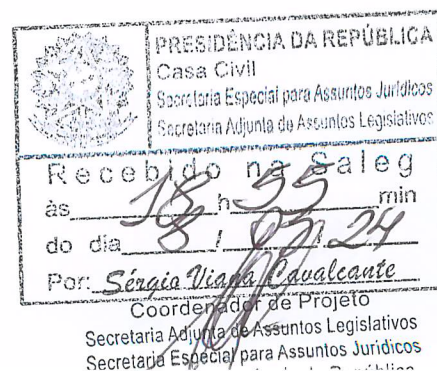 PRESIDÊNCIA DA REPÚBLICA
Casa Civil
Secretaria Especial para Assuntos Jurídicos
Secretaria Adjunta de Assuntos Legislativos
Recebido na Saleg
às 18 h 55 min
do dia 8 / / 24
Por: Sérgio Viana Cavalcante
Coordenador de Projeto
Secretaria Adjunta de Assuntos Legislativos
Secretaria Especial para Assuntos Jurídicos
República